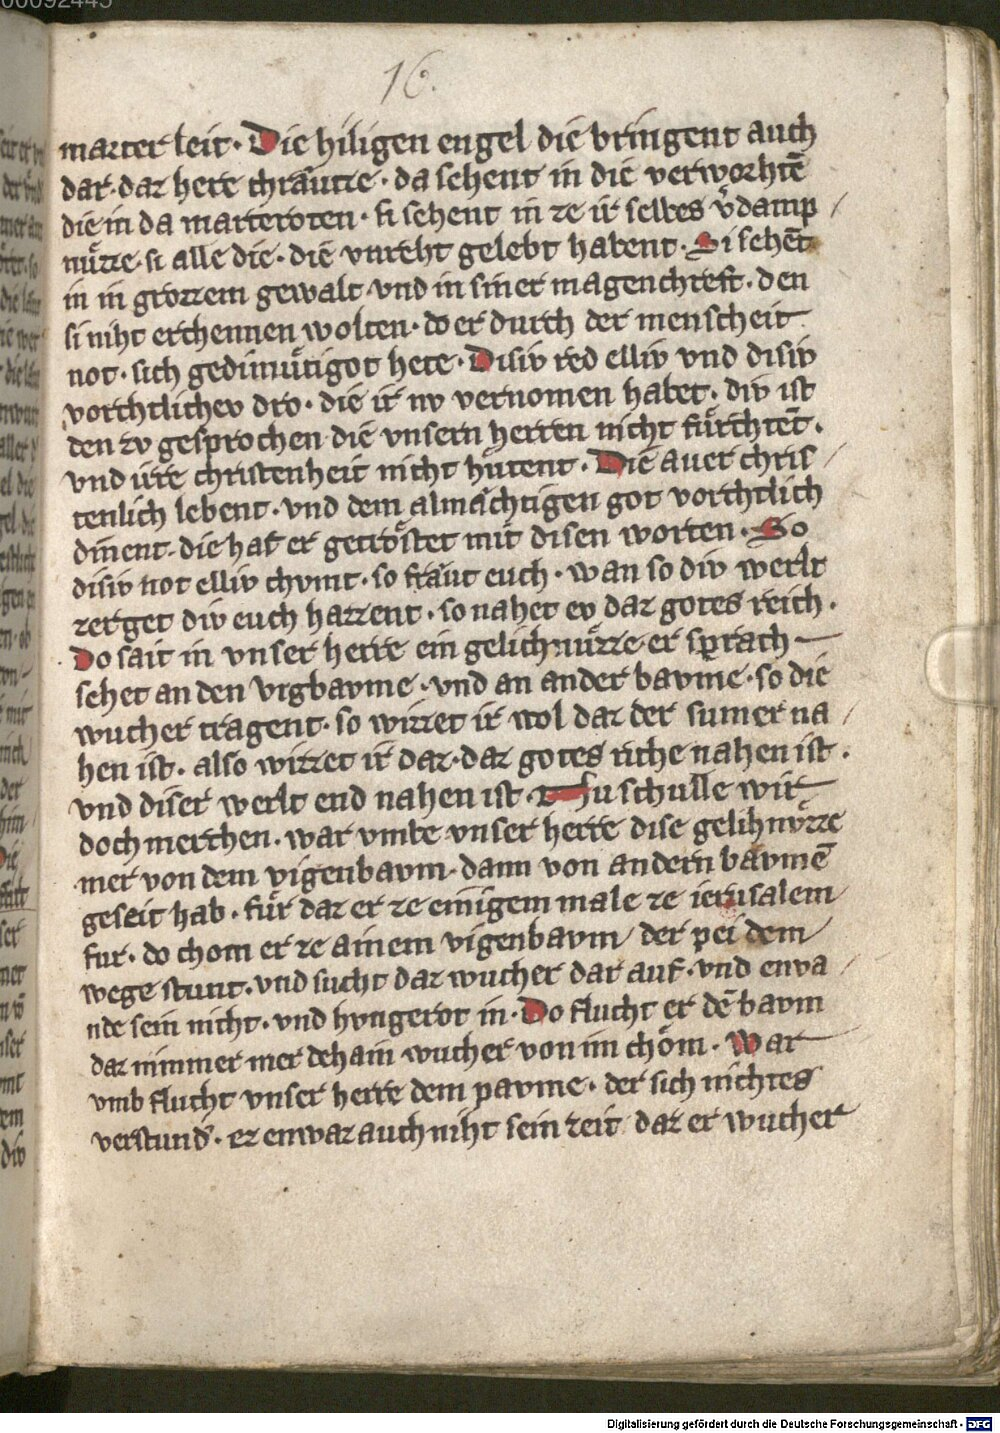 00092445
16.
marter leit · Die hiligen engel die bringent auch
dar · daz here chraͤutze · da sehent in die verworhtē
die in da marteroten · si sehent in ze ir selbes v̊damp /
nuͤzze · si alle die · die vnreht gelebt habent · Si sehēt
in in grozzem gewalt · vnd in siner magenchreft · den
si niht erchennen wolten · do er durch der menscheit
not · sich gedimuͤtigot hete · Disiv red elliv vnd disiv
vorhtlichev dro · die ir nv vernomen habet · div ist
den zv gesprochen die vnsern herren nicht fuͤrchtēt ·
vnd irre christenheit nicht huͤtent · Die auer chris /
tenlich lebent · vnd dem almaͤchtigen got vorhtlich
dinent · die hat er getroͤstet mit disen worten · So
disiv not elliv chvmt · so fraͤut euch · wan so div werlt
zerget div euch hazzent · so nahet ev daz gotes reich ·
Do sait in vnser herre ein gelichnuͤzze · er sprach
sehet an den vigbavme · vnd an ander bavme · so die
wucher tragent · so wizzet ir wol daz der sumer na /
hen ist · also wizzet ir daz · daz gotes riche nahen ist ·
vnd diser werlt end nahen ist · Nu schulle wir
doch merchen · war vmbe vnser herre dise gelihnvͤzze
mer von dem vigenbavm · dann von andern bavmē
geseit hab · fuͤr daz er ze einigem male ze ierusalem
fur · do chom er ze ainem vigenbavm / der pei dem
wege stunt · vnd sucht daz wucher dar auf · vnd enva /
nde sein nicht · vnd hvngerot in · Do flucht er dē bavm
daz nimmer mer dehain wucher von im choͤm · War
vmb flucht vnser herre dem pavme · der sich nichtes
verstund · ez enwaz auch niht sein zeit daz er wucher
Digitalisierung gefördert durch die Deutsche Forschungsgemeinschaft - DFG